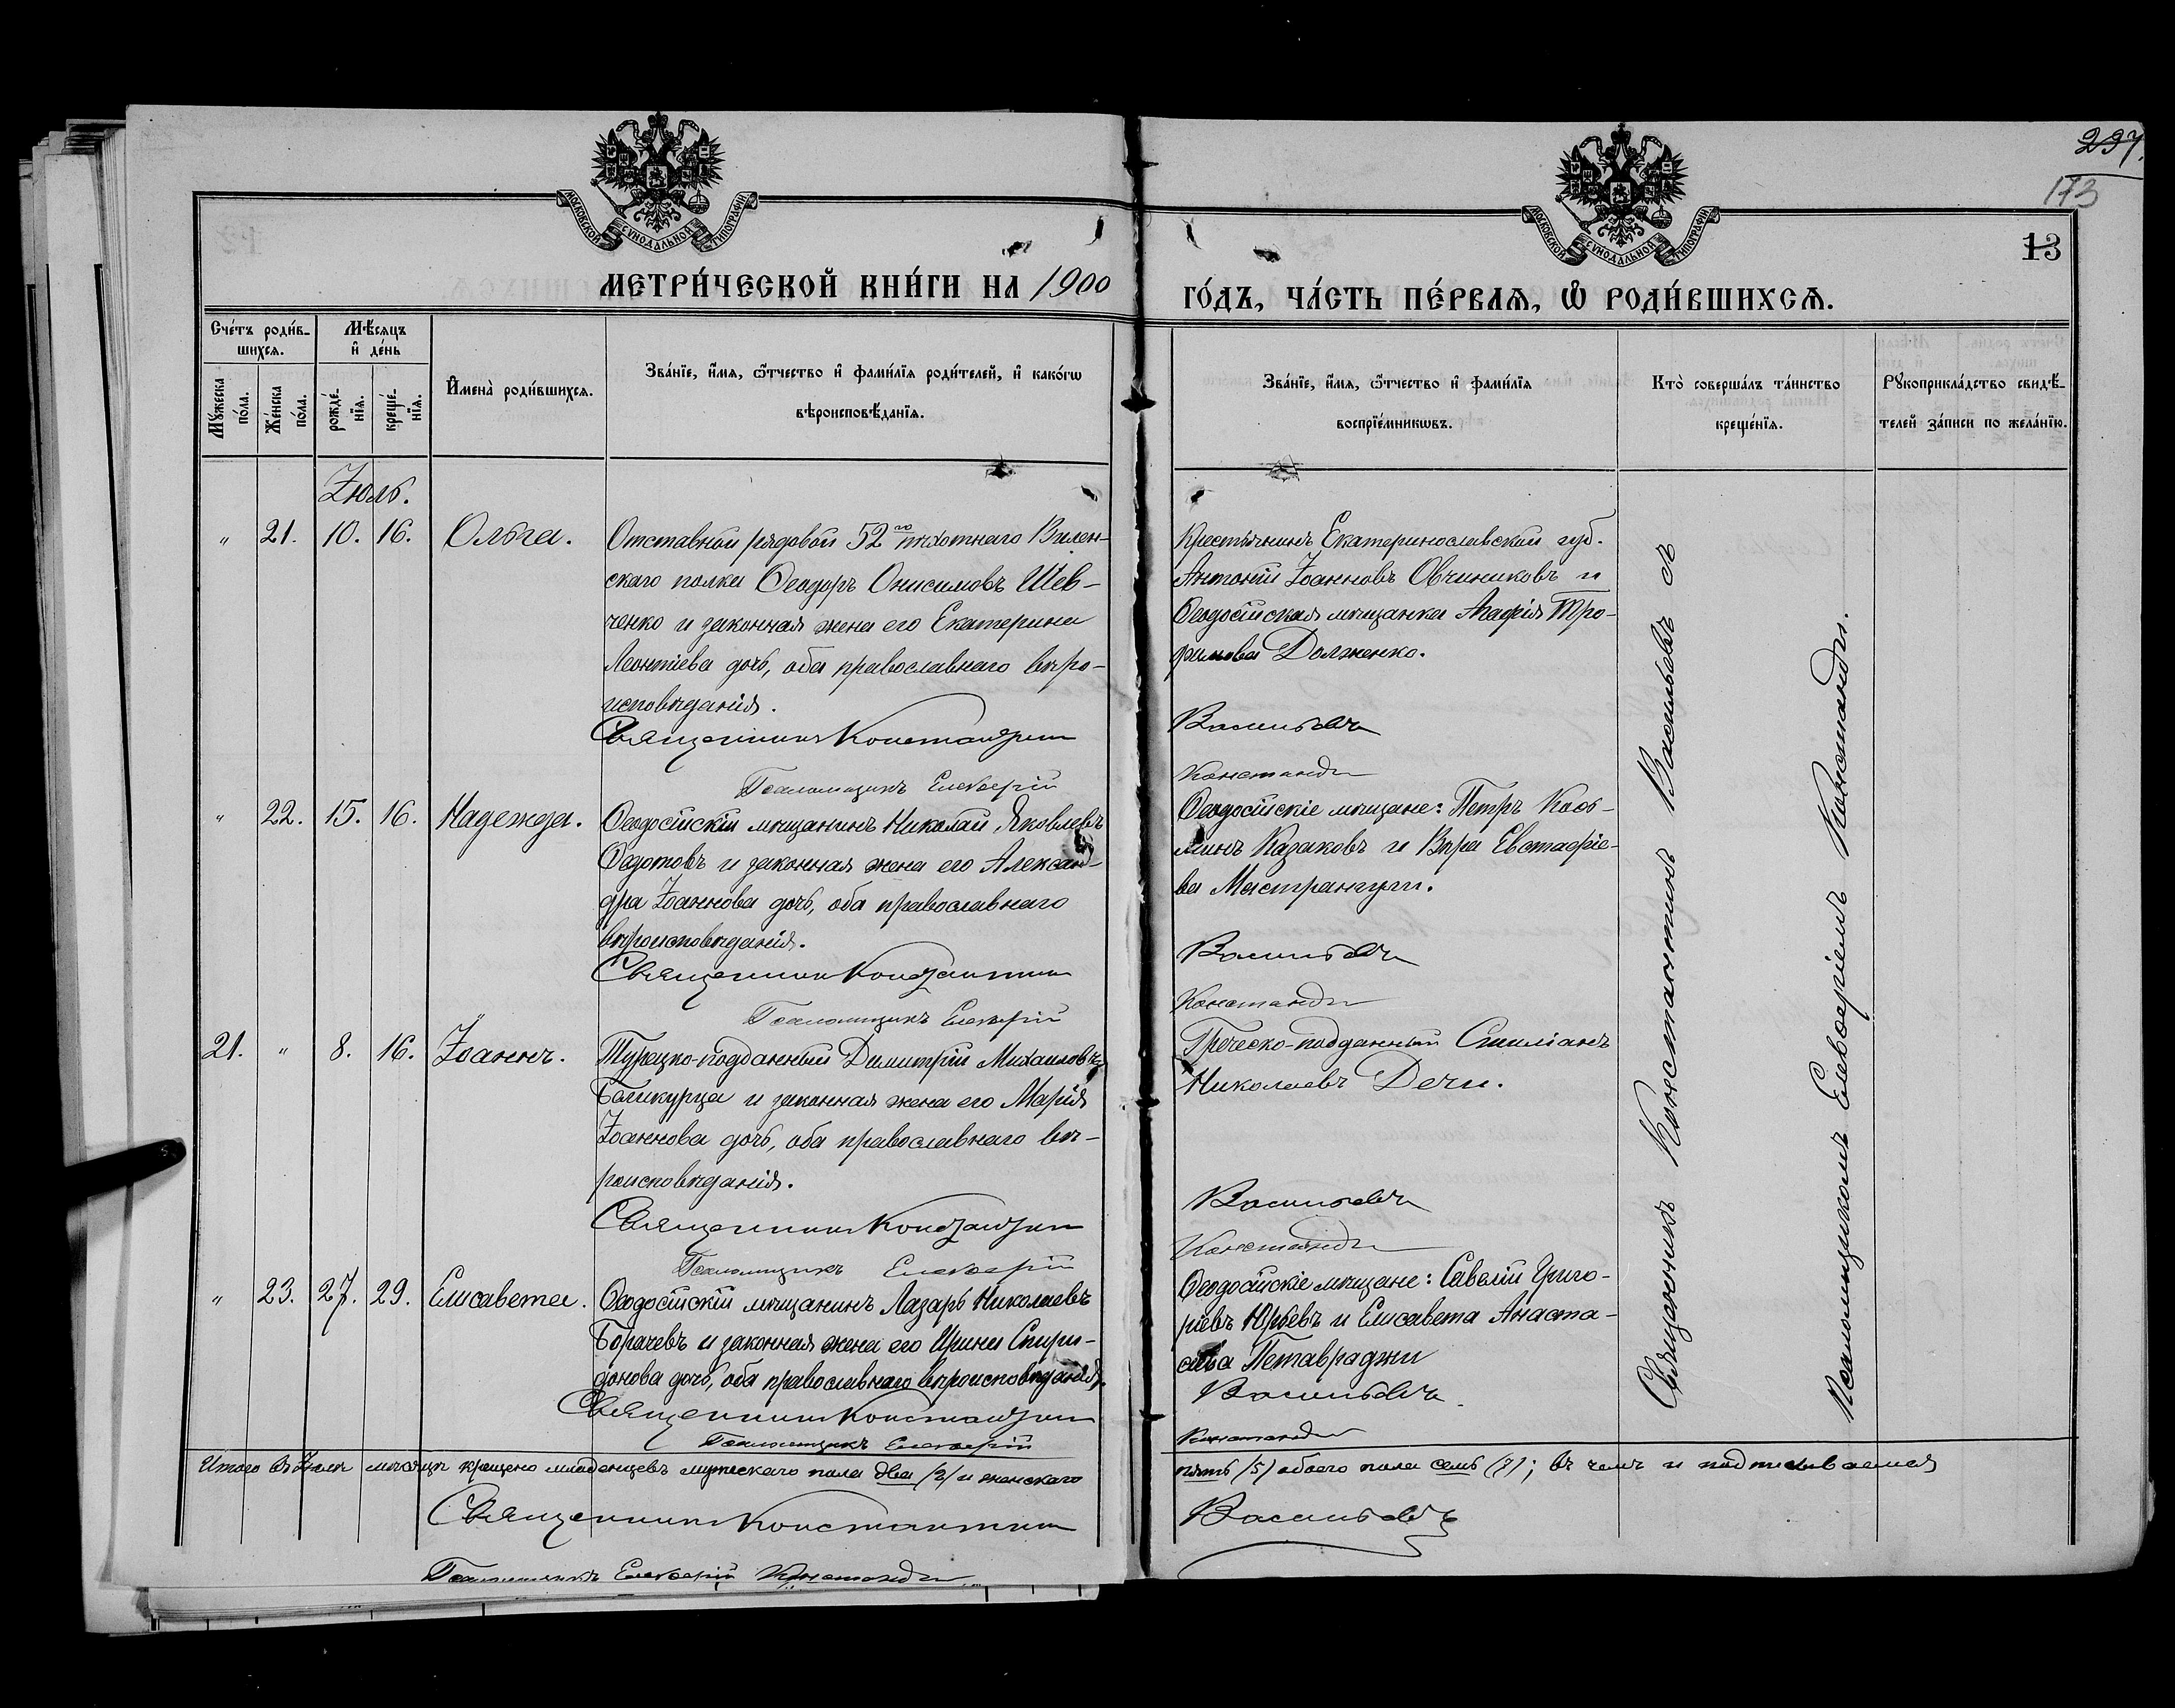 237.
173
13
МОСКОВСКОЙ СѴНОДАЛЬНОЙ ТИПОГРАФІИ
МОСКОВСКОЙ СѴНОДАЛЬНОЙ ТИПОГРАФІИ
МЕТРИ́ЧЕСКОЙ КНИ́ГИ НА 1900 ГО́ДЪ, ЧА́СТЬ ПЕ́РВАѦ, Ѡ҆ РОДИ́ВШИХСѦ.
Сче́тъ роди́в-
шихся.
Мꙋ́жеска по́ла.
Же́нска по́ла.
Мѣ́сяцъ
и҆ де́нь
рожде́-
нїя.
креще́-
нїя.
И҆мена̀ роди́вшихся.
Зва́нїе, и҆́мя, ѻ҆́тчество и҆ фами́лїя роди́телей, и҆ како́гѡ
вѣроисповѣ́данїя.
Зва́нїе, и҆́мя, ѻ҆́тчество и҆ фами́лїя
воспрїе́мникѡвъ.
Кто̀ соверша́лъ та́инство
креще́нїя.
Рꙋкоприкла́дство свидѣ́-
телей за́писи по жела́нїю.
Іюль.
„ 21. 10. 16. Ольга.
Отставной рядовой 52го пѣхотнаго Вилен-
скаго полка Ѳеодоръ Онисимовъ Шев-
ченко и законная жена его Екатерина
Леонтіева дочь, оба православнаго вѣро-
исповѣданія.
Священникъ Константинъ
Псаломщикъ Елевѳерій
Крестьянинъ Екатеринославской губ.
Антоній Іоанновъ Овчиниковъ и
Ѳеодосійская мѣщанка Агафія Тро-
фимова Долженко.
Васильевъ
Констанди
„ 22. 15. 16. Надежда.
Ѳеодосійскій мѣщанинъ Николай Яковлевъ
Ѳедотовъ и законная жена его Алексан-
дра Іоаннова дочь, оба православнаго
вѣроисповѣданія.
Священникъ Константинъ
Псаломщикъ Елевѳерій
Ѳеодосійскіе мѣщане: Петръ Козь-
минъ Казаковъ и Вѣра Евстафіе-
ва Мастрангули.
Васильевъ
Констанди
21. „ 8. 16. Іоаннъ.
Турецко-подданный Димитрій Михаиловъ
Баликурца и законная жена его Марія
Іоаннова дочь, оба православнаго вѣ-
роисповѣданія.
Священникъ Константинъ
Псаломщикъ Елевѳерій
Греческо-подданный Стиліанъ
Николаевъ Дечи.
Васильевъ
Констанди
„ 23. 27. 29. Елисавета.
Ѳеодосійскій мѣщанинъ Лазарь Николаевъ
Борачевъ и законная жена его Ирина Спири-
донова дочь, оба православнаго вѣроисповѣданія.
Священникъ Константинъ
Псаломщикъ Елевѳерій
Ѳеодосійскіе мѣщане: Савелій Григо-
ріевъ Юрьевъ и Елисавета Анаста-
сьева Петавраджи
Васильевъ
Констанди
Священникъ Константинъ Васильевъ съ
Псаломщикомъ Елевѳеріемъ Констанди.
Итого въ Іюлѣ мѣсяцѣ крещено младенцевъ мужескаго пола два (2) и женскаго
пять (5) обоего пола семь (7); въ чемъ и подписываемся
Священникъ Константинъ Васильевъ
Псаломщикъ Елевѳерій Констанди